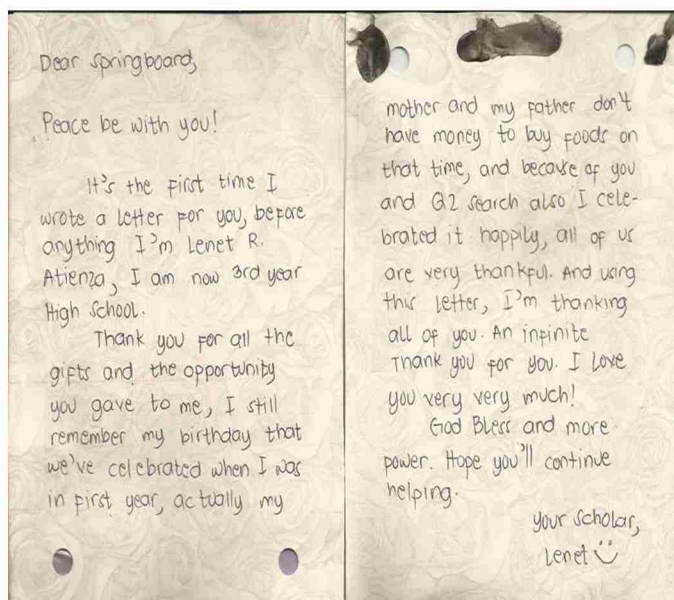 Dear Springboard,
Peace be with you!
It's the first time I
wrote a letter for you, before
anything I'm Lenet R.
Atienza, I am now 3rd year
High School.
Thank you for all the
gifts and the opportunity
you gave to me, I still
remember my birthday that
we've celebrated when I was
in first year, actually my
mother and my father don't
have money to buy foods on
that time, and because of you
and G2 Search also I cele-
brated it happily, all of us
are very thankful. And using
this letter, I'm thanking
all of you. An infinite
Thank you for you. I Love
you very very much!
God Bless and more
power. Hope you'll continue
helping.
your scholar,
Lenet